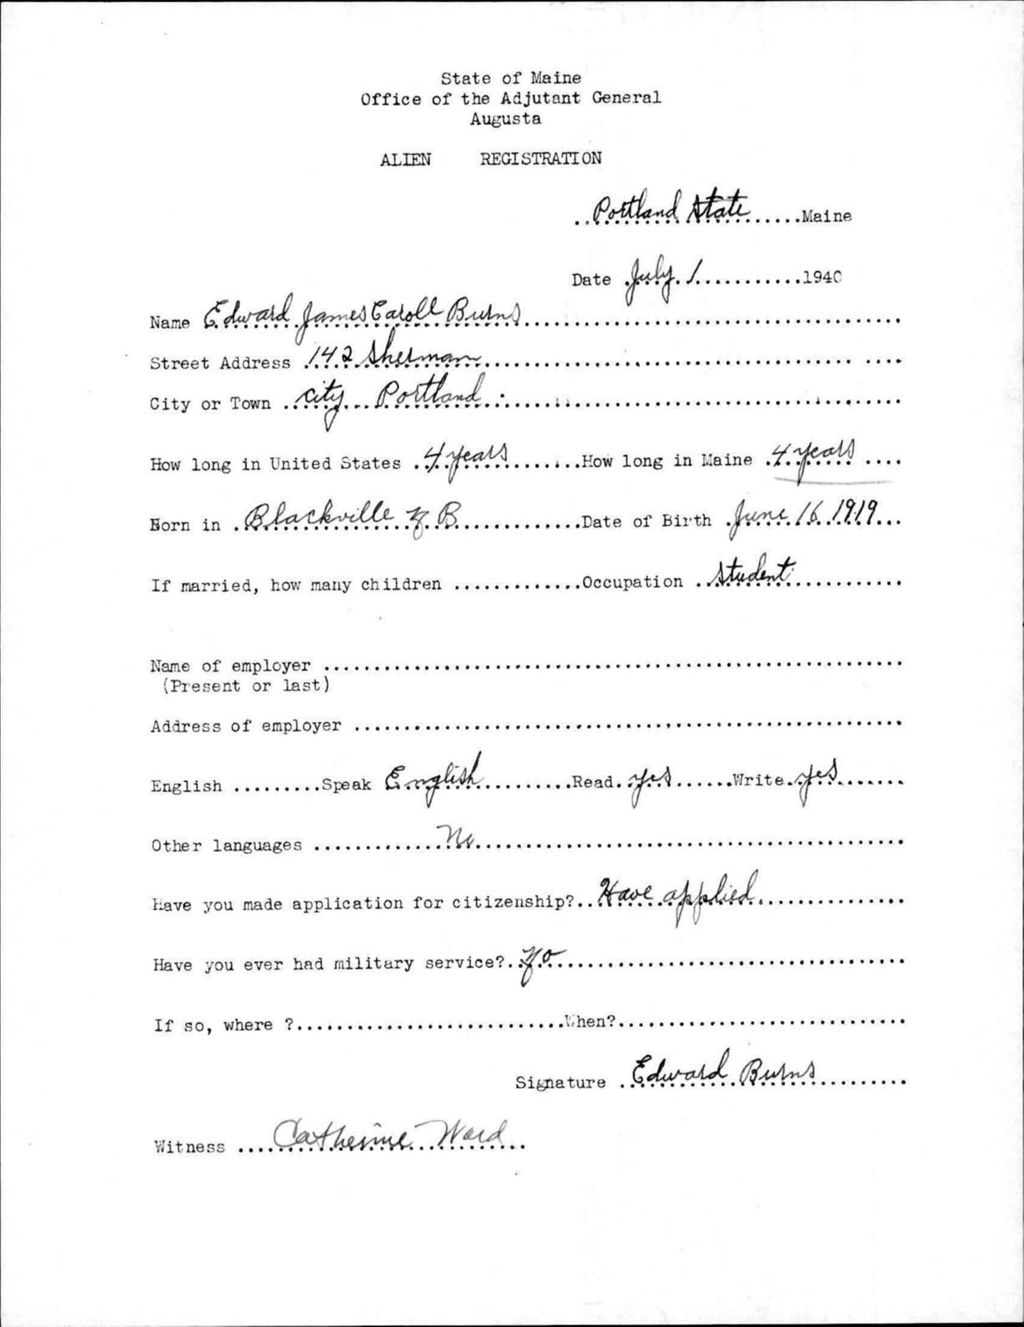 State of Maine
Office of the Adjutant General
Augusta
ALIEN REGISTRATION
Portland State Maine
Date July 1 1940
Name Edward James Caroll Burns
Street Address 142 Sherman
City or Town City Portland
How long in United States 4 years How long in Maine 4 years
Born in Blackville N B Date of Birth June 16 1919
If married, how many children Occupation Student
Name of employer
(Present or last)
Address of employer
English Speak English Read yes Write yes
Other languages No
Have you made application for citizenship? Have applied
Have you ever had military service? No
If so, where ? When?
Signature Edward Burns
Witness Catherine Ward